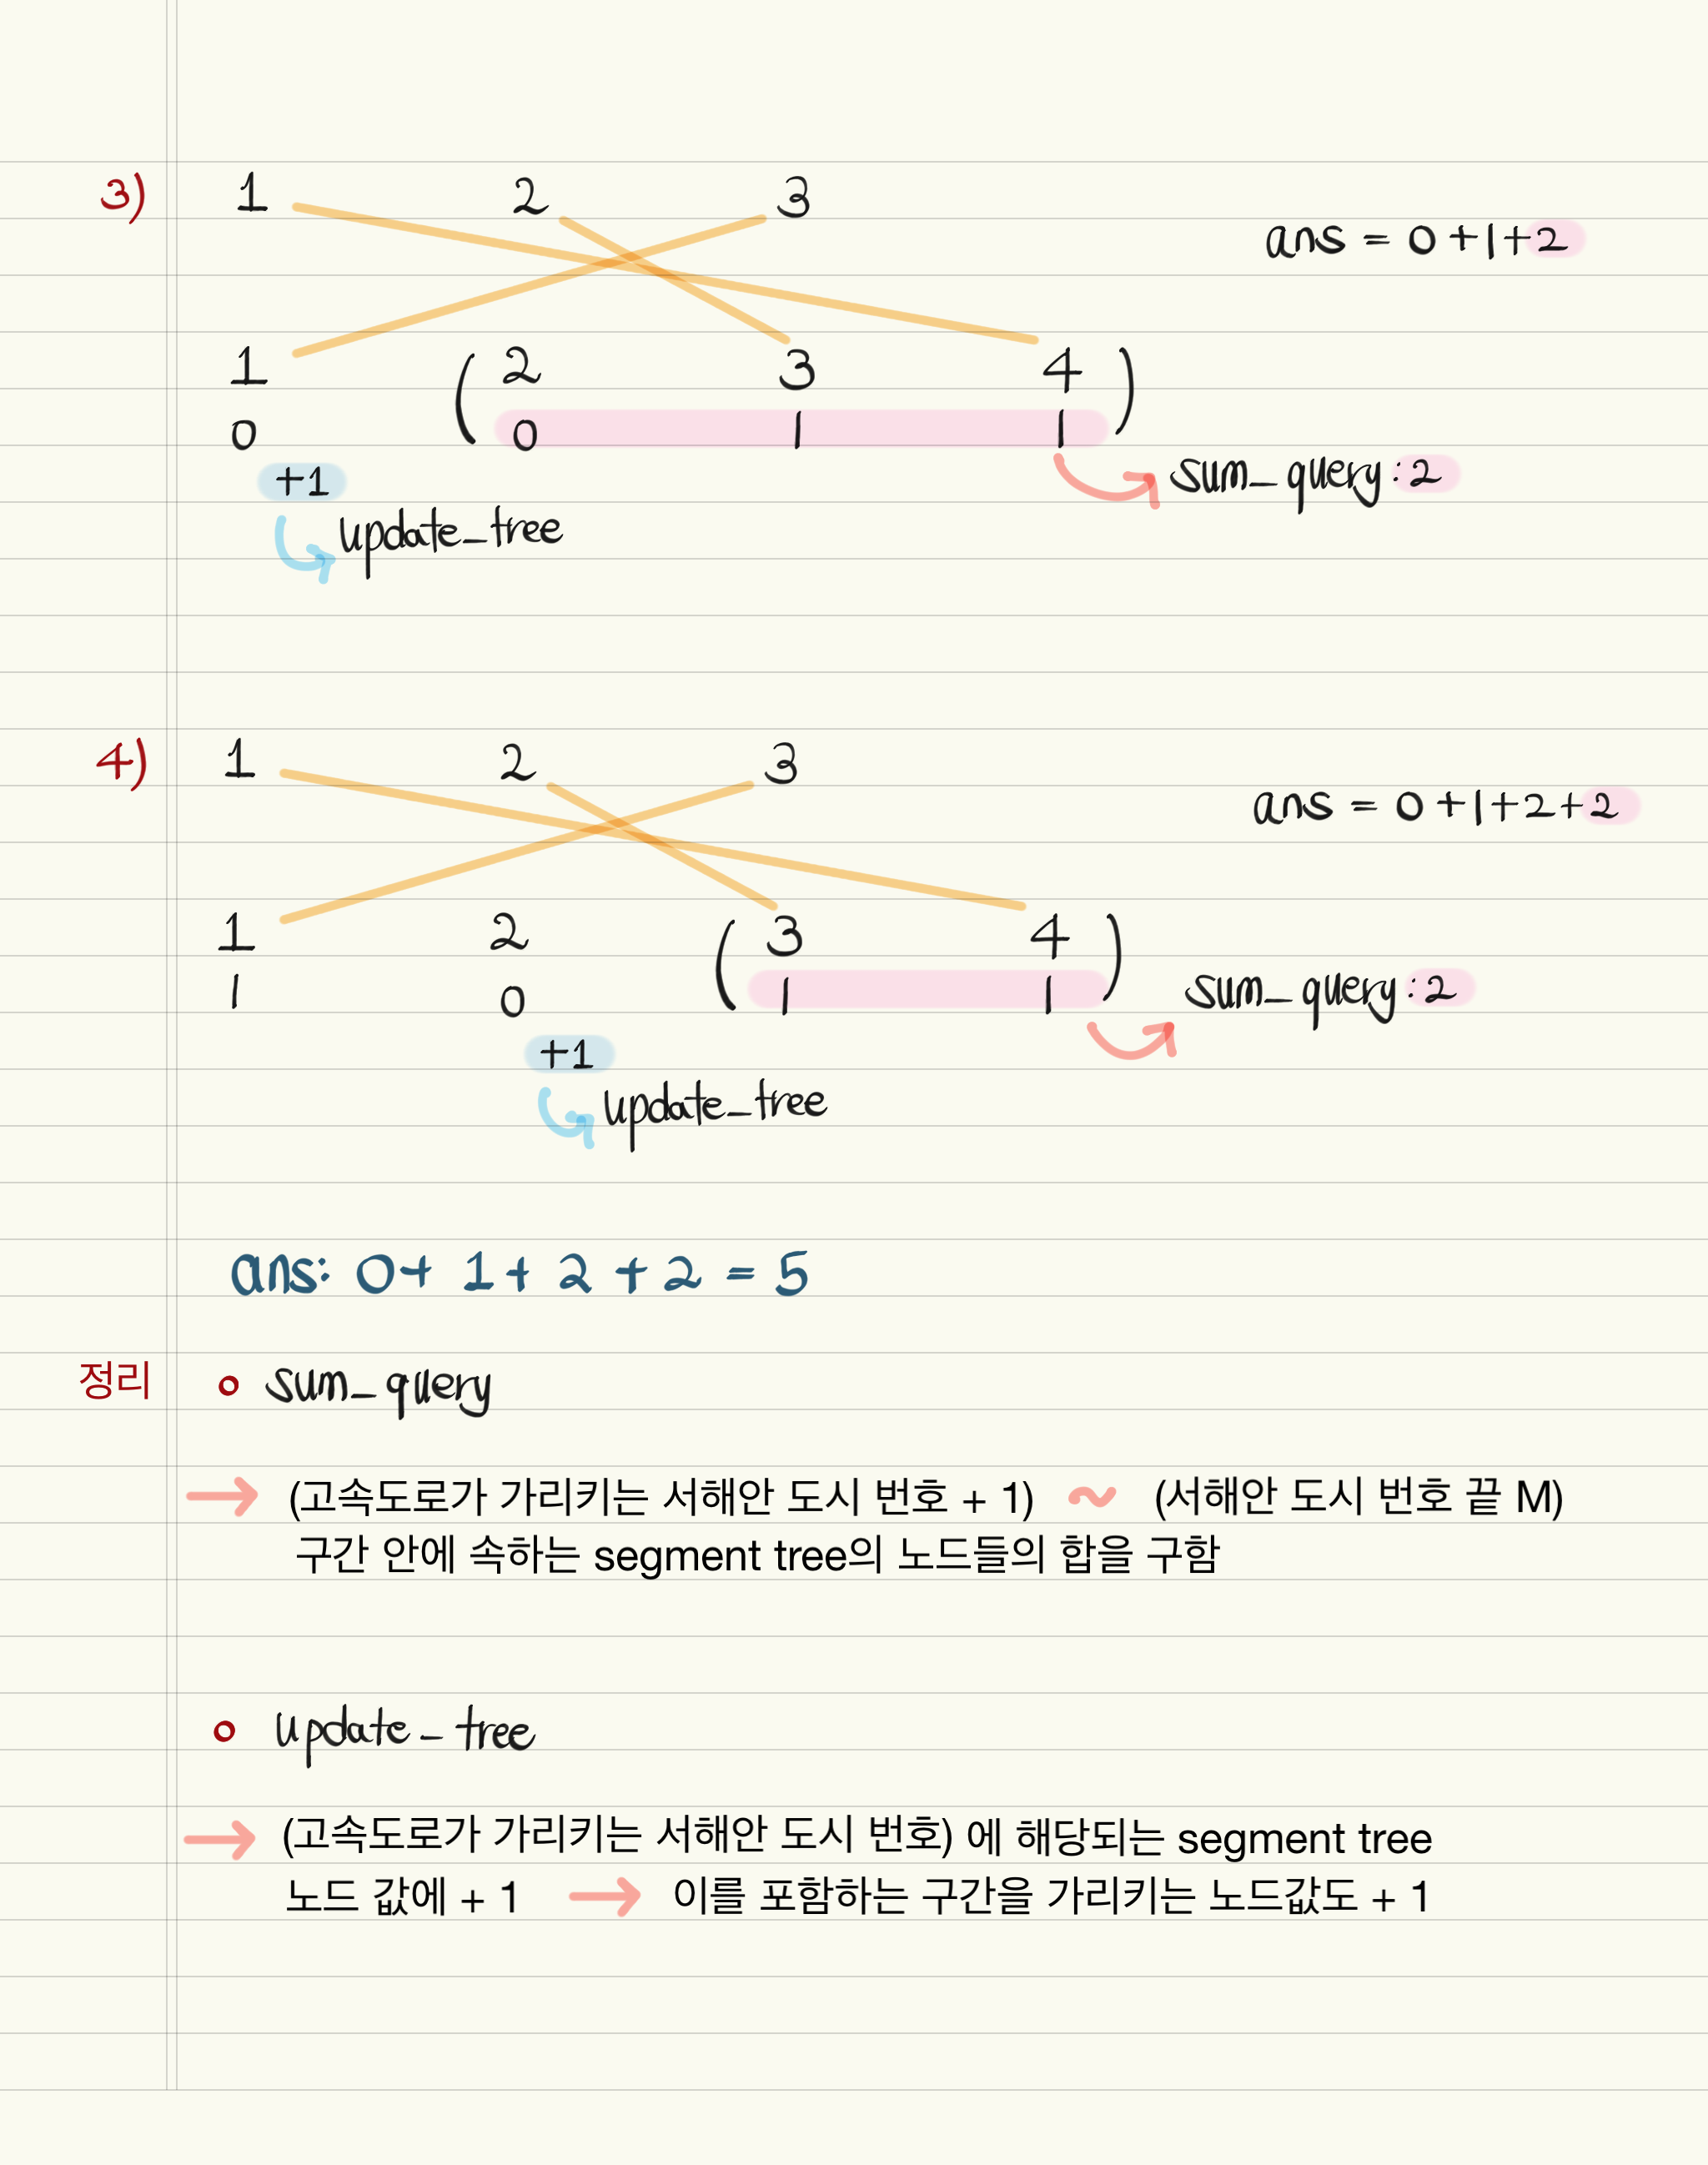 3) 1 2 3
ans = 0+1+2
1 ( 2 3 4 )
0 0 1 1
+1
sum_query : 2
update_tree
4) 1 2 3
ans = 0+1+2+2
1 2 ( 3 4 )
1 0 1 1
sum_query : 2
+1
update_tree
ans: 0+ 1+ 2 + 2 = 5
정리 ∘ sum_query
→ (고속도로가 가리키는 서해안 도시 번호 + 1) ~ (서해안 도시 번호 끝 M)
구간 안에 속하는 segment tree의 노드들의 합을 구함
∘ update_tree
→ (고속도로가 가리키는 서해안 도시 번호) 에 해당되는 segment tree
노드 값에 + 1 → 이를 포함하는 구간을 가리키는 노드값도 + 1